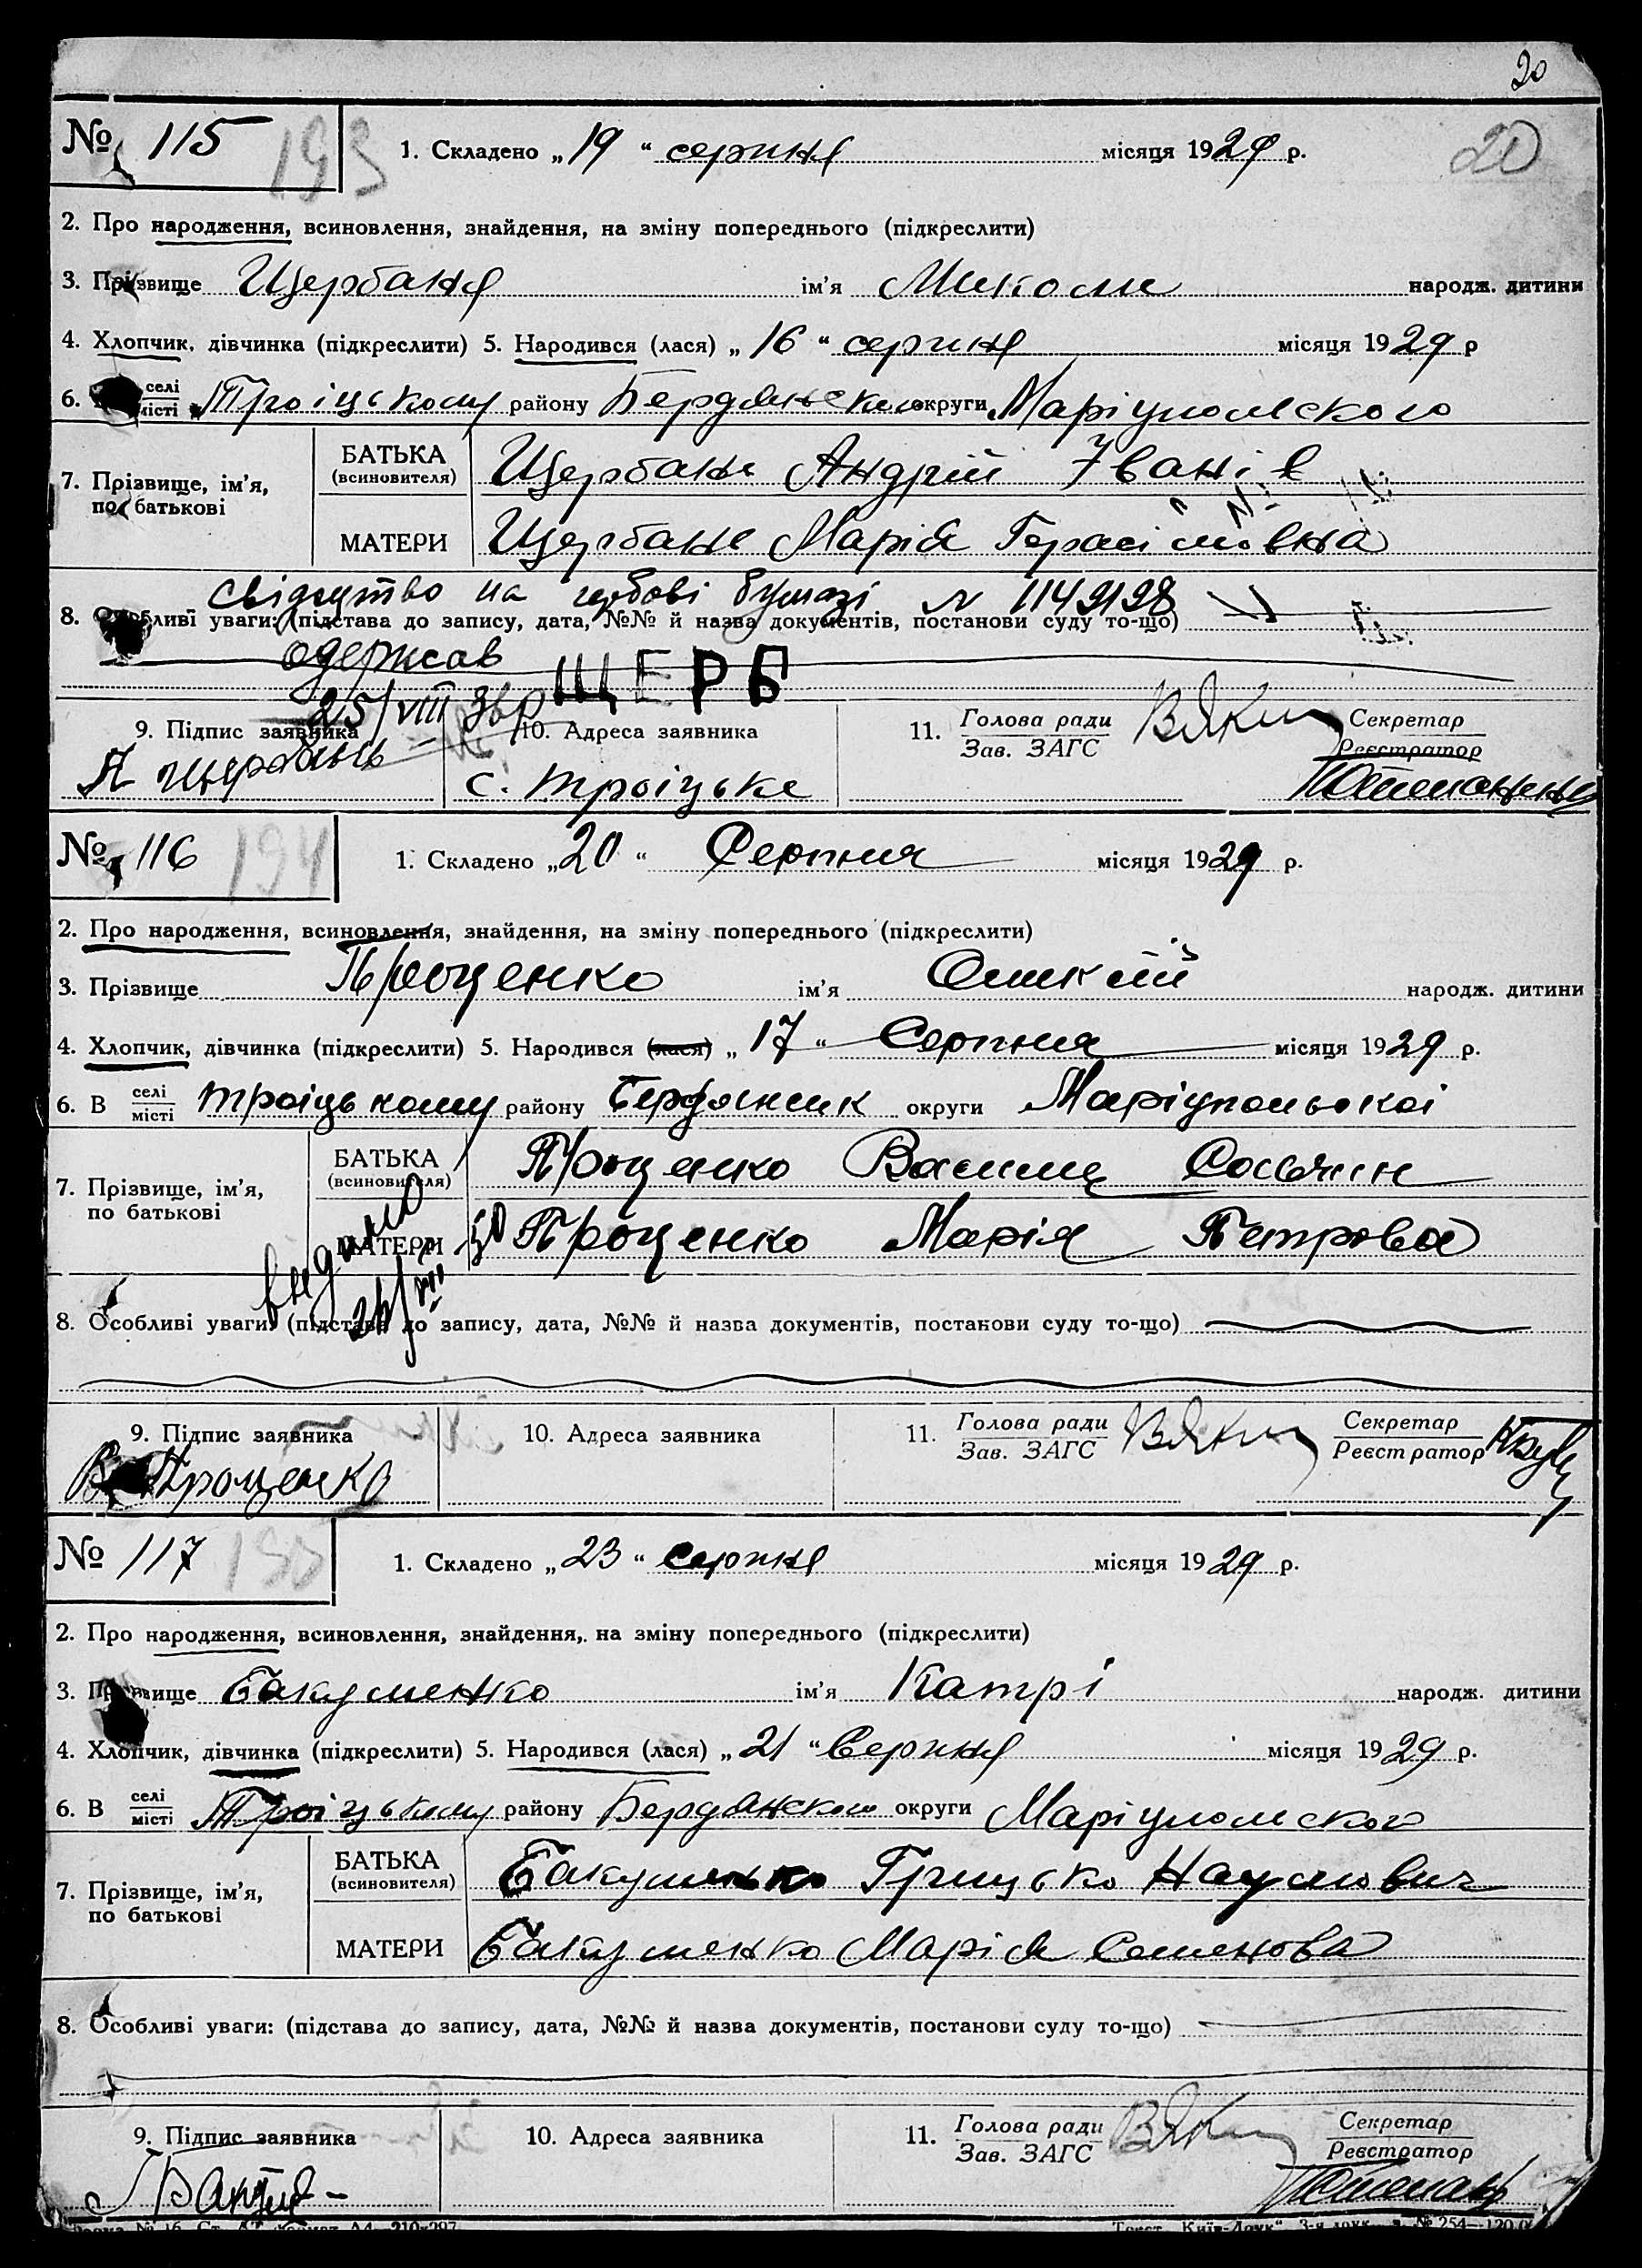 20
№ 115 193 1. Складено „19“ серпня місяця 1929 р. 20
2. Про народження, всиновлення, знайдення, на зміну попереднього (підкреслити)
3. Прізвище Щербаня ім'я Миколи народж. дитини
4. Хлопчик, дівчинка (підкреслити) 5. Народився (лася) „16“ серпня місяця 1929 р
6. селі місті Троіцькому району Бердянського округи Маріупольского
7. Прізвище, ім'я, по батькові
БАТЬКА (всиновителя) Щербань Андрій Іванів
МАТЕРИ Щербань Марія Герасімовна
Свідуцтво на гербові бумазі N 1149198
8. Особливі уваги: (підстава до запису, дата, №№ й назва документів, постанови суду то-що)
одержав ЩЕРБ
25/VIII
9. Підпис заявника 10. Адреса заявника 11. Голова ради Зав. ЗАГС Секретар Реєстратор
А Щербань с. Троіцьке
№ 116 194 1. Складено „20“ Серпня місяця 1929 р.
2. Про народження, всиновлення, знайдення, на зміну попереднього (підкреслити)
3. Прізвище Проценко ім'я народж. дитини
4. Хлопчик, дівчинка (підкреслити) 5. Народився (лася) „17“ Серпня місяця 1929 р.
6. В селі місті Троіцькому району округи Маріупольскоі
7. Прізвище, ім'я, по батькові
БАТЬКА (всиновителя) Проценко
МАТЕРИ Проценко Марія Петрова
видано
8. Особливі уваги: (підстава до запису, дата, №№ й назва документів, постанови суду то-що)
9. Підпис заявника 10. Адреса заявника 11. Голова ради Зав. ЗАГС Секретар Реєстратор
В Проценко
№ 117 195 1. Складено „23“ серпня місяця 1929 р.
2. Про народження, всиновлення, знайдення, на зміну попереднього (підкреслити)
3. Прізвище Бакуменко ім'я Катрі народж. дитини
4. Хлопчик, дівчинка (підкреслити) 5. Народився (лася) „21“ Серпня місяця 1929 р.
6. В селі місті Троіцькому району Бердянського округи Маріупольского
7. Прізвище, ім'я, по батькові
БАТЬКА (всиновителя) Бакуменко Грицько Наумович
МАТЕРИ Бакуменко Марія Семенова
8. Особливі уваги: (підстава до запису, дата, №№ й назва документів, постанови суду то-що)
9. Підпис заявника 10. Адреса заявника 11. Голова ради Зав. ЗАГС Секретар Реєстратор